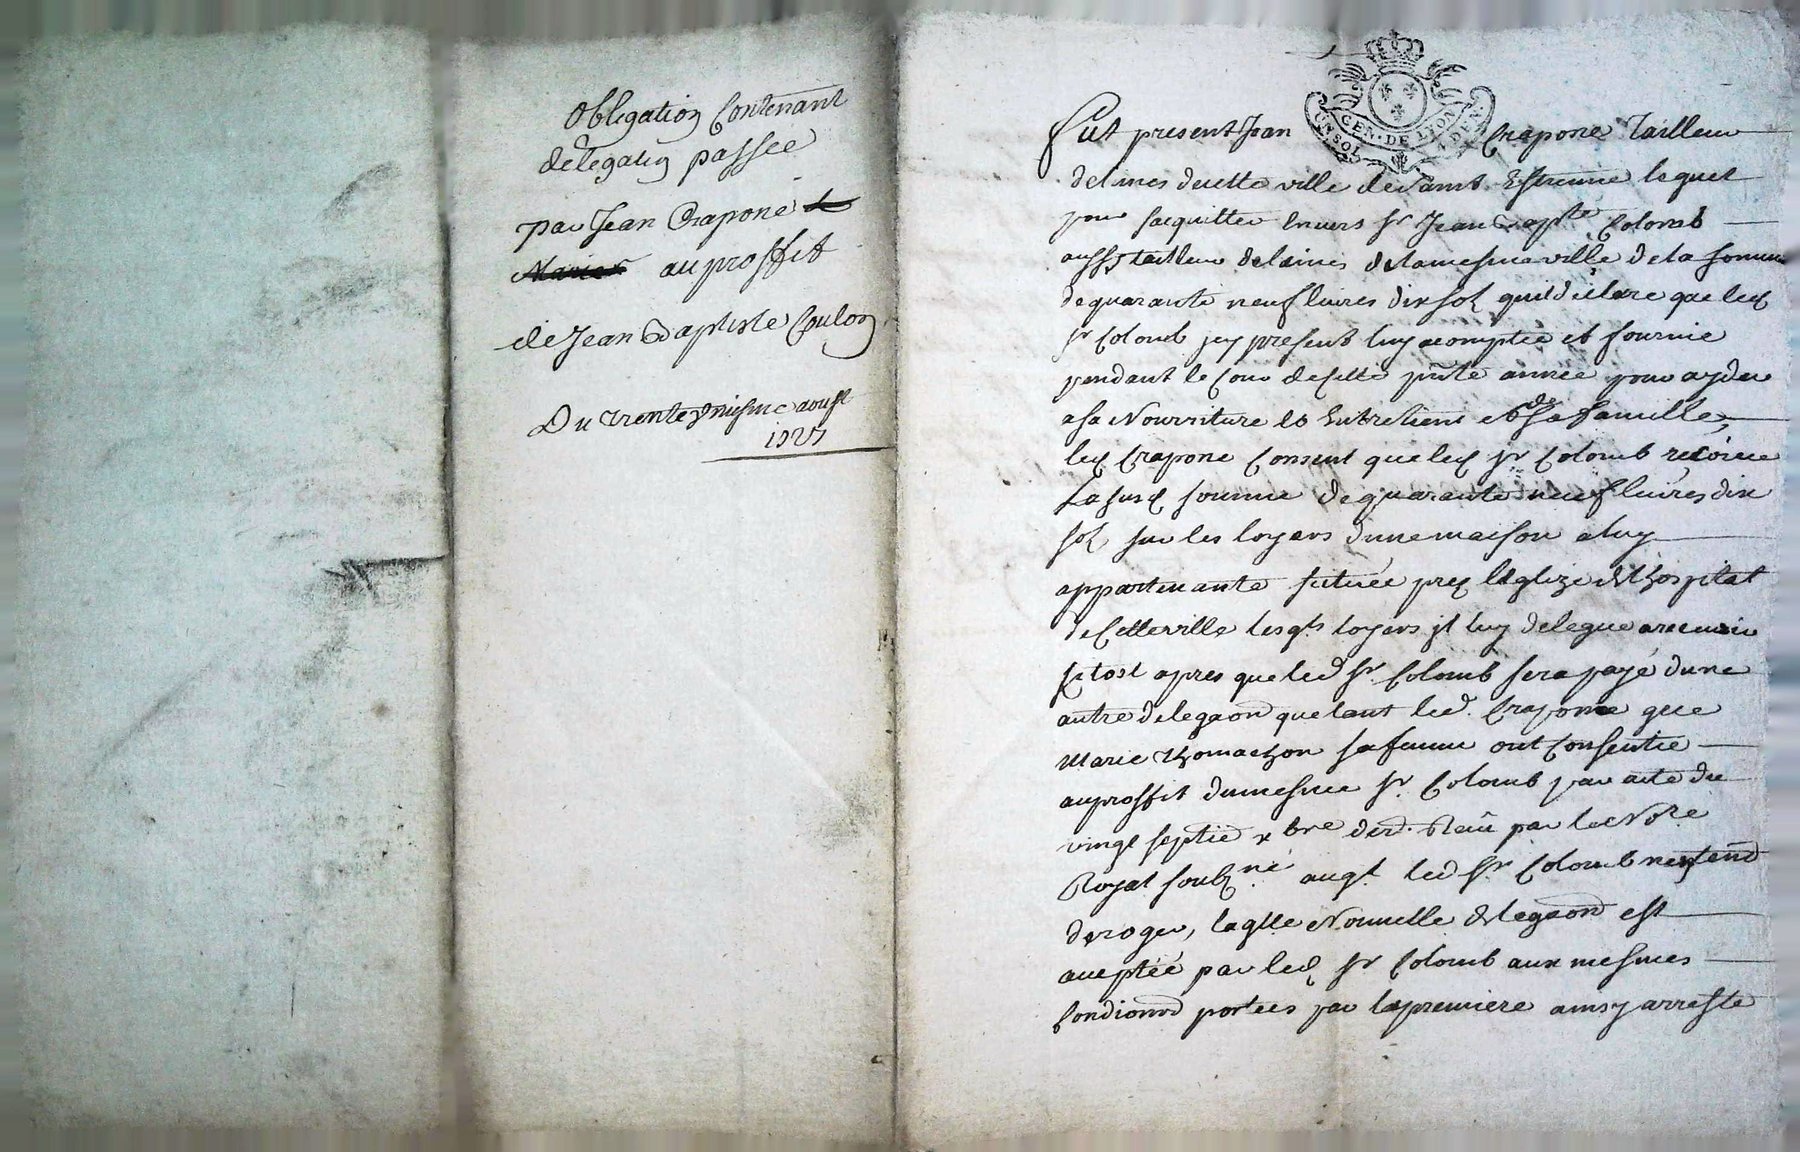 Obligation Contenant
delegation passée
par Jean Crapone et
Marie au proffit
de Jean Baptiste Coulon
Du trente uniesme aoust
1727
GEN · DE LYON
UN SOL
Fut present Jean Crapone Tailleur
de limes de cette ville de Saint Estienne lequel
pour sacquitter envers Sr Jean Baptte Colomb
aussy tailleur de limes de la mesme ville de la somme
de quarante neuf livres dix solz quil declare que led
Sr Colomb icy present luy a comptée et fournie
pendant le cour de cette pnte année pour ayder
a sa Nourriture et Entretiens et de sa famille,
led Crapone Consent que led Sr Colomb reçoive
La susd somme de quarante neuf livres dix
solz sur les loyers dune maison a luy
appartenante scituée prez l'Eglize de l'hospital
de Cette ville lesqls loyers il luy delegue a recevoir
sitost apres que led Sr Colomb sera payé dune
autre delegaon que tant led. Crapone que
Marie Thomachon sa femme ont Consentie
au proffit du mesme Sr Colomb par acte du
vingt septie xbre der. Receu par le Nore
Royal soubzné auql led Sr Colomb n'entend
deroger, laqlle Nouvelle delegaon est
acceptée par led Sr Colomb aux mesmes
Condions portées par la premiere ainsy arresté